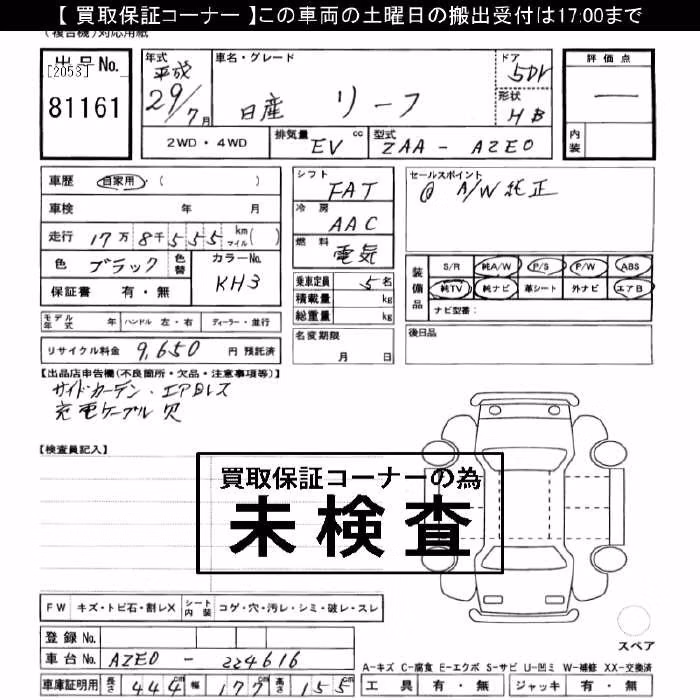 【 買取保証コーナー 】この車両の土曜日の搬出受付は17:00まで
(複合機)対応用紙
出品No.
[2053]
81161
年式
平成
29/7月
車名・グレード
日産 リーフ
ドア
5Dr
形状
HB
評価点
—
内装
2WD・4WD
排気量 EV cc
型式 ZAA - AZE0
車歴 自家用・( )
車検 年 月
走行 17万8千555 km マイル( )
色 ブラック 色替
カラーNo. KH3
保証書 有・無
シフト
FAT
冷房
AAC
燃料
電気
乗車定員 5名
積載量 kg
総重量 kg
セールスポイント
@ A/W純正
装備品
S/R 純A/W P/S P/W ABS
純TV 純ナビ 革シート 外ナビ エアB
ナビ型番:
モデル年式 年 ハンドル 左・右 ディーラー・並行
名変期限
月 日
後日品
リサイクル料金 9,650 円 預託済
【出品店申告欄(不良箇所・欠品・注意事項等)】
サイドカーテン・エアBレス
充電ケーブル欠
【検査員記入】
買取保証コーナーの為
未検査
FW キズ・トビ石・割レX シート内装 コゲ・穴・汚レ・シミ・破レ・スレ
スペア
登録No.
車台No. AZE0 - 224616
A-キズ C-腐食 E-エクボ S-サビ U-凹ミ W-補修 XX-交換済
車庫証明用 長さ 444cm 幅 177cm 高さ 155cm
工具 有・無 ジャッキ 有・無